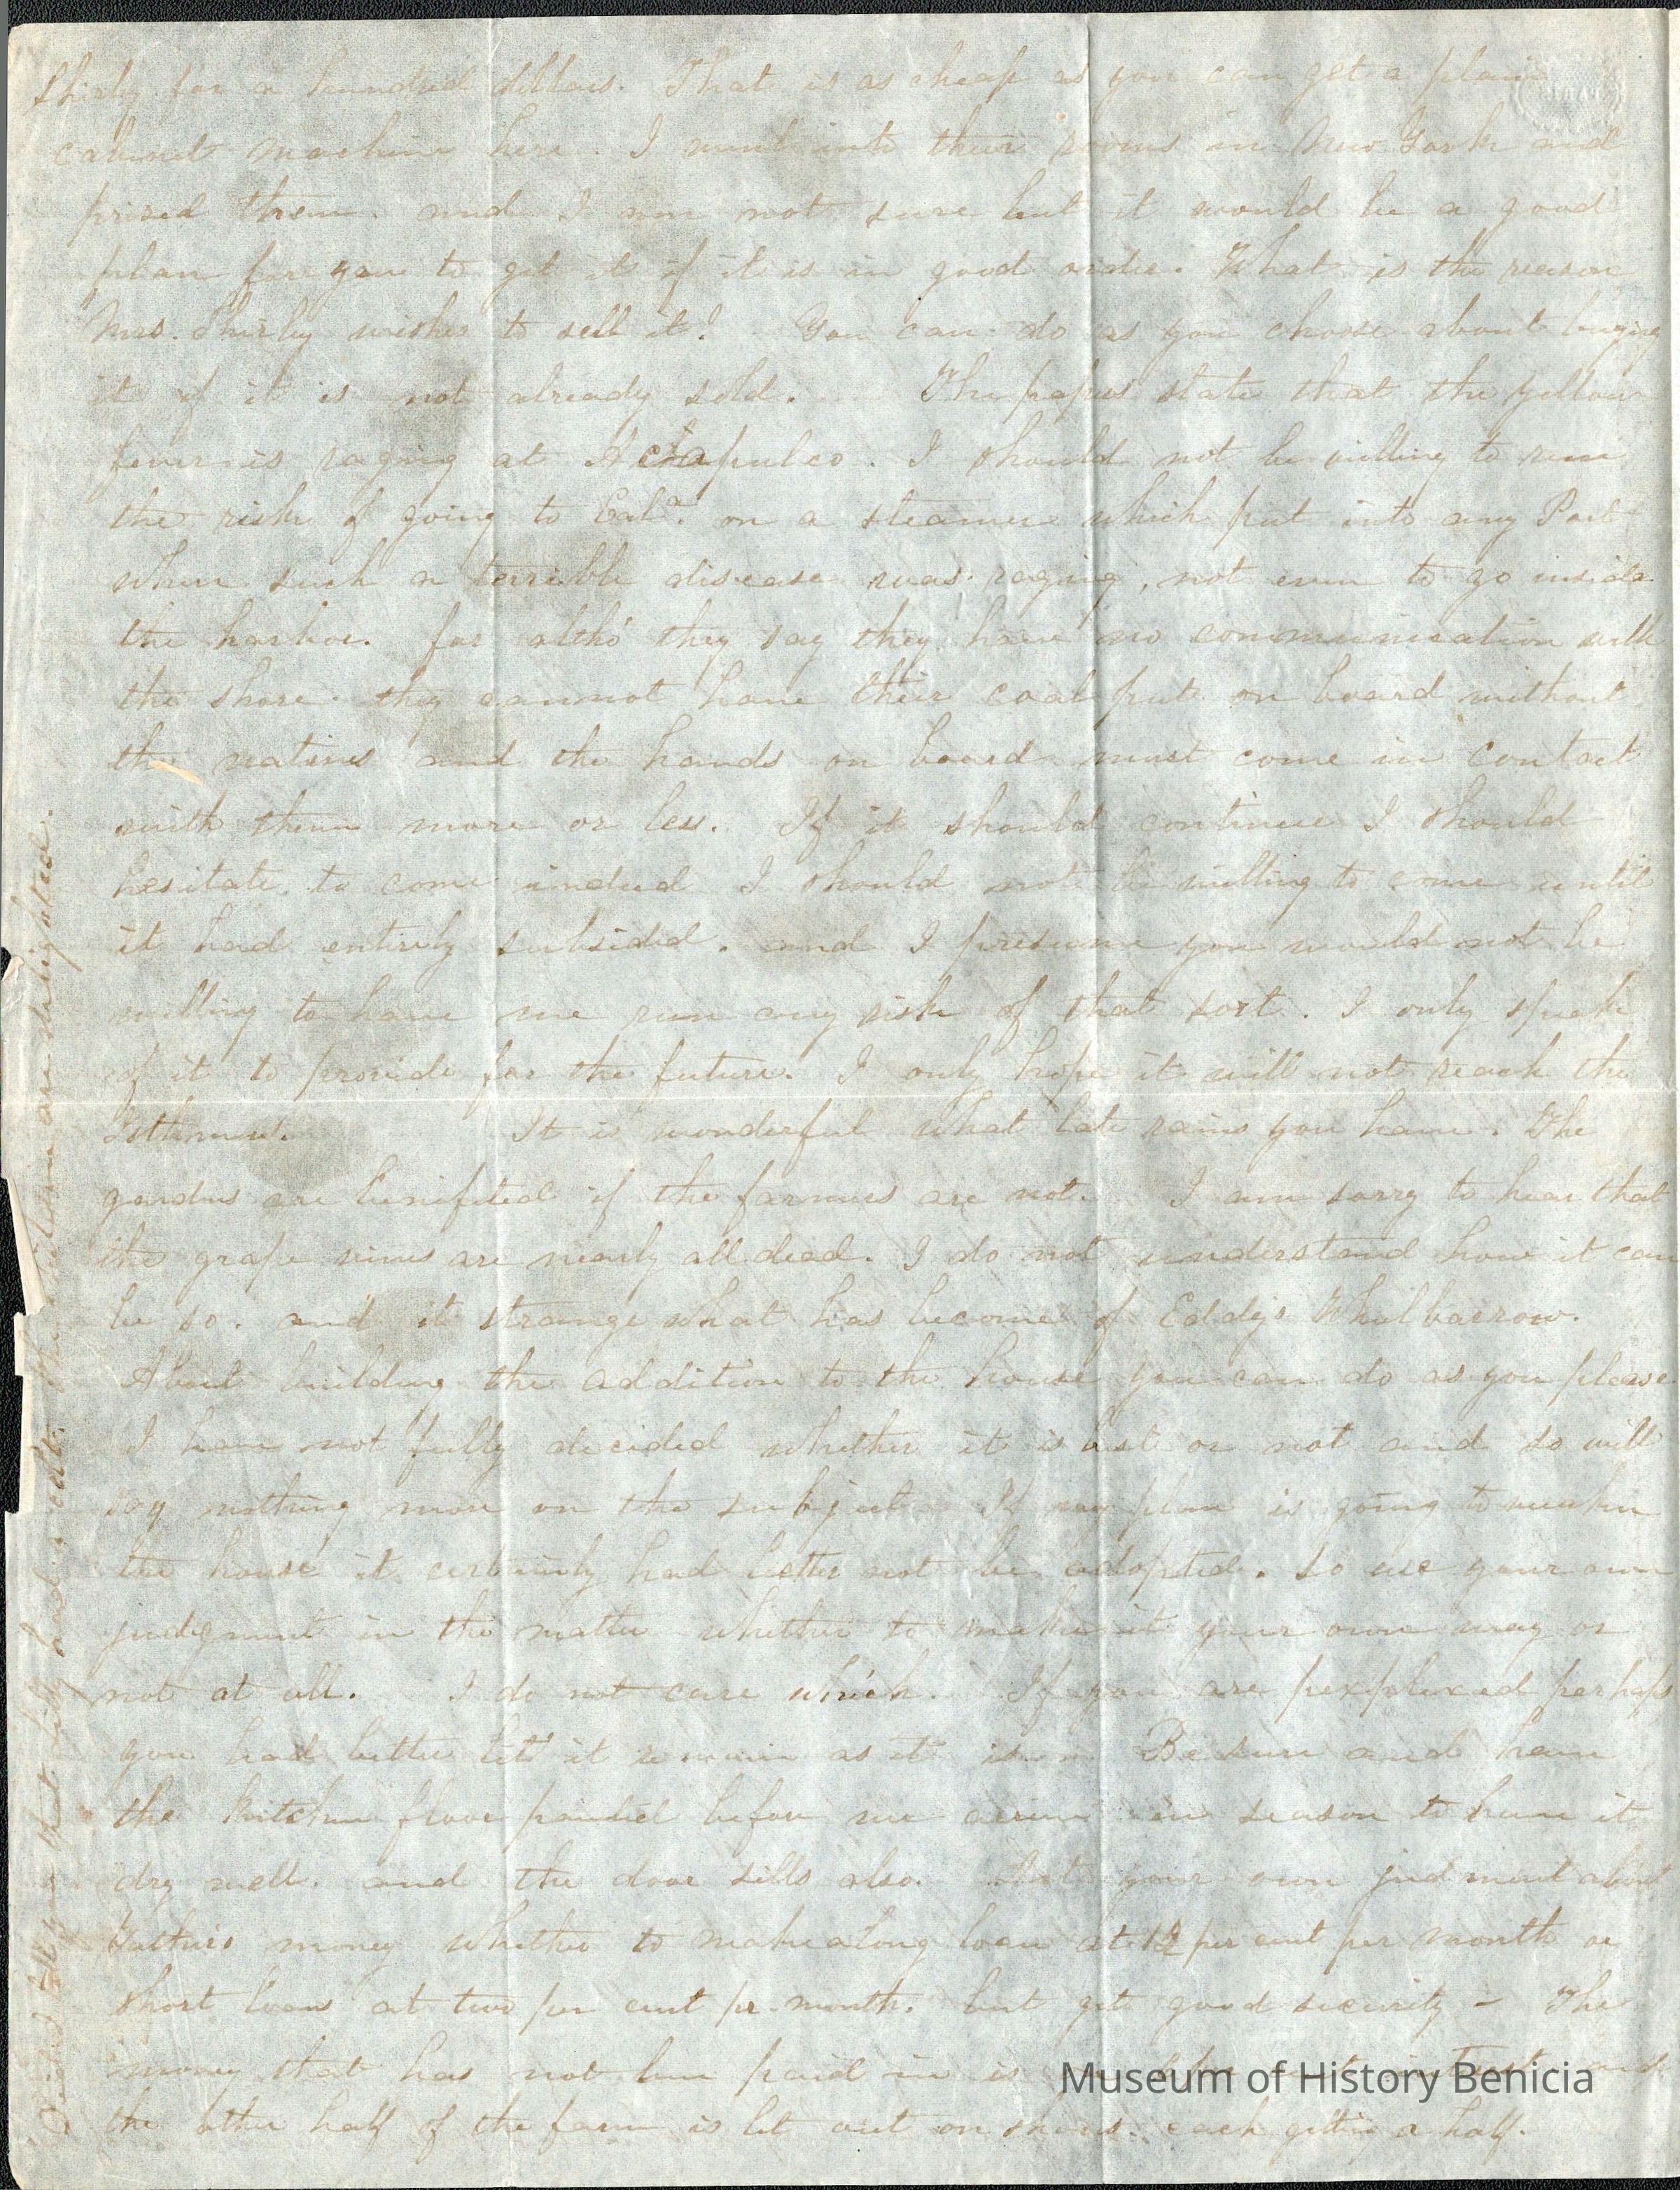 Shirley for a hundred dollars. That is as cheap as you can get a plain
cabinet machine here. I went into their rooms in New York and
prized them. and I am not sure but it would be a good
plan for you to get it if it is in good order. What is the reason
Mrs. Shirley wishes to sell it? You can do as you choose about buying
it if it is not already sold. The papers state that the yellow
fever is raging at Acapulco. I should not be willing to run
the risk of going to Cala. on a steamer which put into any Port
where such a terrible disease was raging, not even to go inside
the harbor. for altho' they say they have no communication with
the shore. they cannot have their coal put on board without
the natives and the hands on board must come in contact
with them more or less. If it should continue I should
hesitate to come indeed I should not be willing to come until
it had entirely subsided. and I presume you would not be
willing to have me run any risk of that sort. I only speak
of it to provide for the future. I only hope it will not reach the
Isthmus. It is wonderful what late rains you have. The
gardens are benifited if the farmers are not. I am sorry to hear that
the grape vines are nearly all dead. I do not understand how it can
be so. and it strange what has become of Eddy's Whelbarrow.
About building the addition to the house you can do as you please.
I have not fully decided whether it is best or not and so will
say nothing more on the subject. If my plan is going to weaken
the house it certainly had better not be adopted. So use your own
judgment in the matter whether to make it your own way or
not at all. I do not care which. If you are perplexed perhaps
you had better let it remain as it is. Be sure and have
the kitchen floor painted before we arrive in season to have it
dry well. and the door sills also. your own judment about
Fathers money whether to make a long loan at 1½ per cent per month or
short loans at two per cent pr. month. but get good security - The
money that has not been paid in is and
the other half of the farm is let out on shares. each getting a half.
tell you that had The children are delighted.
Museum of History Benicia